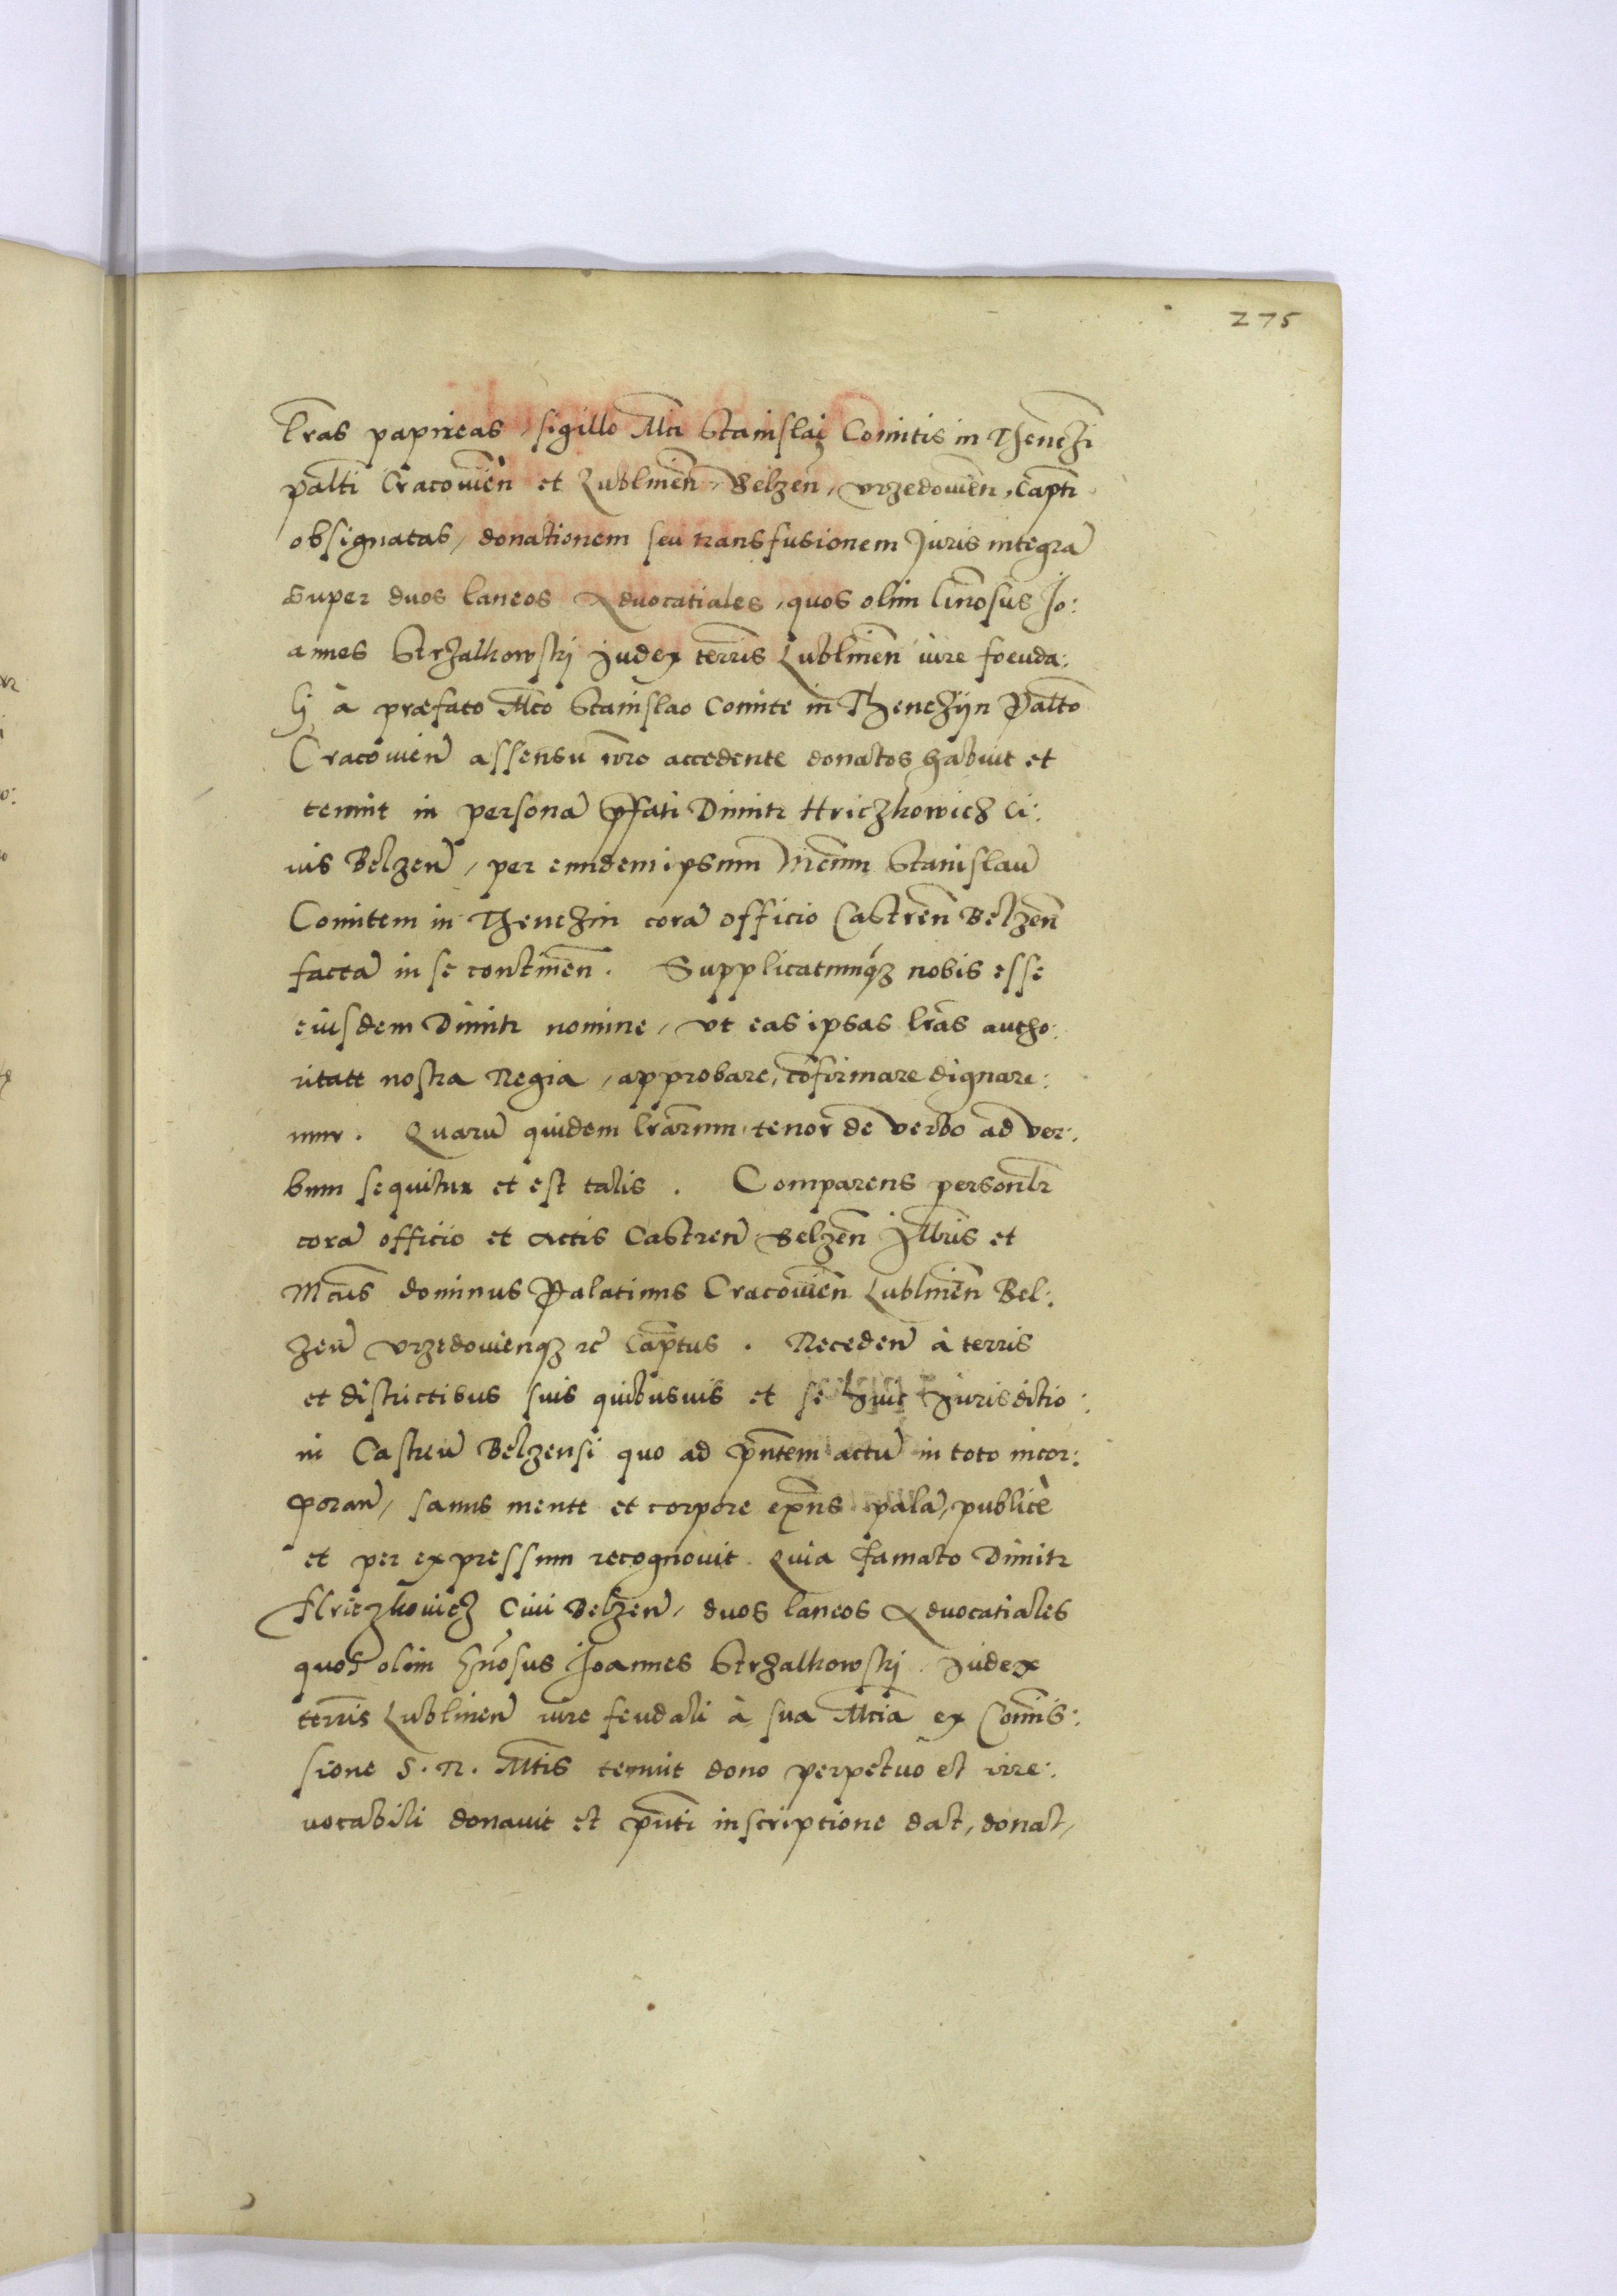 275
lras papireas, sigillo Mci Stanislai Comitis in Thenczi
palti Cracovien et Lublinen, Belzen, vrzedovien, Capti
obsignatas, donationem seu transfusionem Juris integra
super duos laneos Advocatiales, quos olim Gnosus Jo:
annes Strzalkowskj Judex terris Lublinen iure foeuda:
lj à præfato Mco Stanislao Comite in Thenczijn Palto
Cracovien assensu nro accedente donatos habuit et
tenuit in persona pfati Dimitr Hriczkowicz Ci:
uis Belzen, per eundem ipsum Mcum Stanislau
Comitem in Thenczin cora officio Castren Belzen
facta in se continen. Supplicatumq3 nobis esse
eiusdem Dimitr nomine, vt eas ipsas lras autho:
ritate nostra Regia, approbare, cofirmare dignare:
mur. Quaru quidem lrarum tenor de verbo ad ver:
bum sequitur et est talis. Comparens personlr
cora officio et Actis Castren Belzen Jllris et
Mcus dominus Palatinus Cracovien Lublinen Bel:
zen vrzedovienq3 rc Captus. Receden à terris
et districtibus suis quibusuis et se huic Jurisditio:
ni Castren Belzensi quo ad pntem actu in toto incor:
poran, sanus mente et corpore exns pala, publicè
et per expressum recognovit. Quia famato Dimitr
Hriczkouicz Ciui Belzen, duos laneos Aduocatiales
quos olim Gnosus Joannes Strzalkowskj Judex
terris Lublinen iure feudali à sua Mcia ex Comis:
sione S. R. Mtis tenuit dono perpetuo et irre:
uocabili donauit et pnti inscriptione dat, donat,